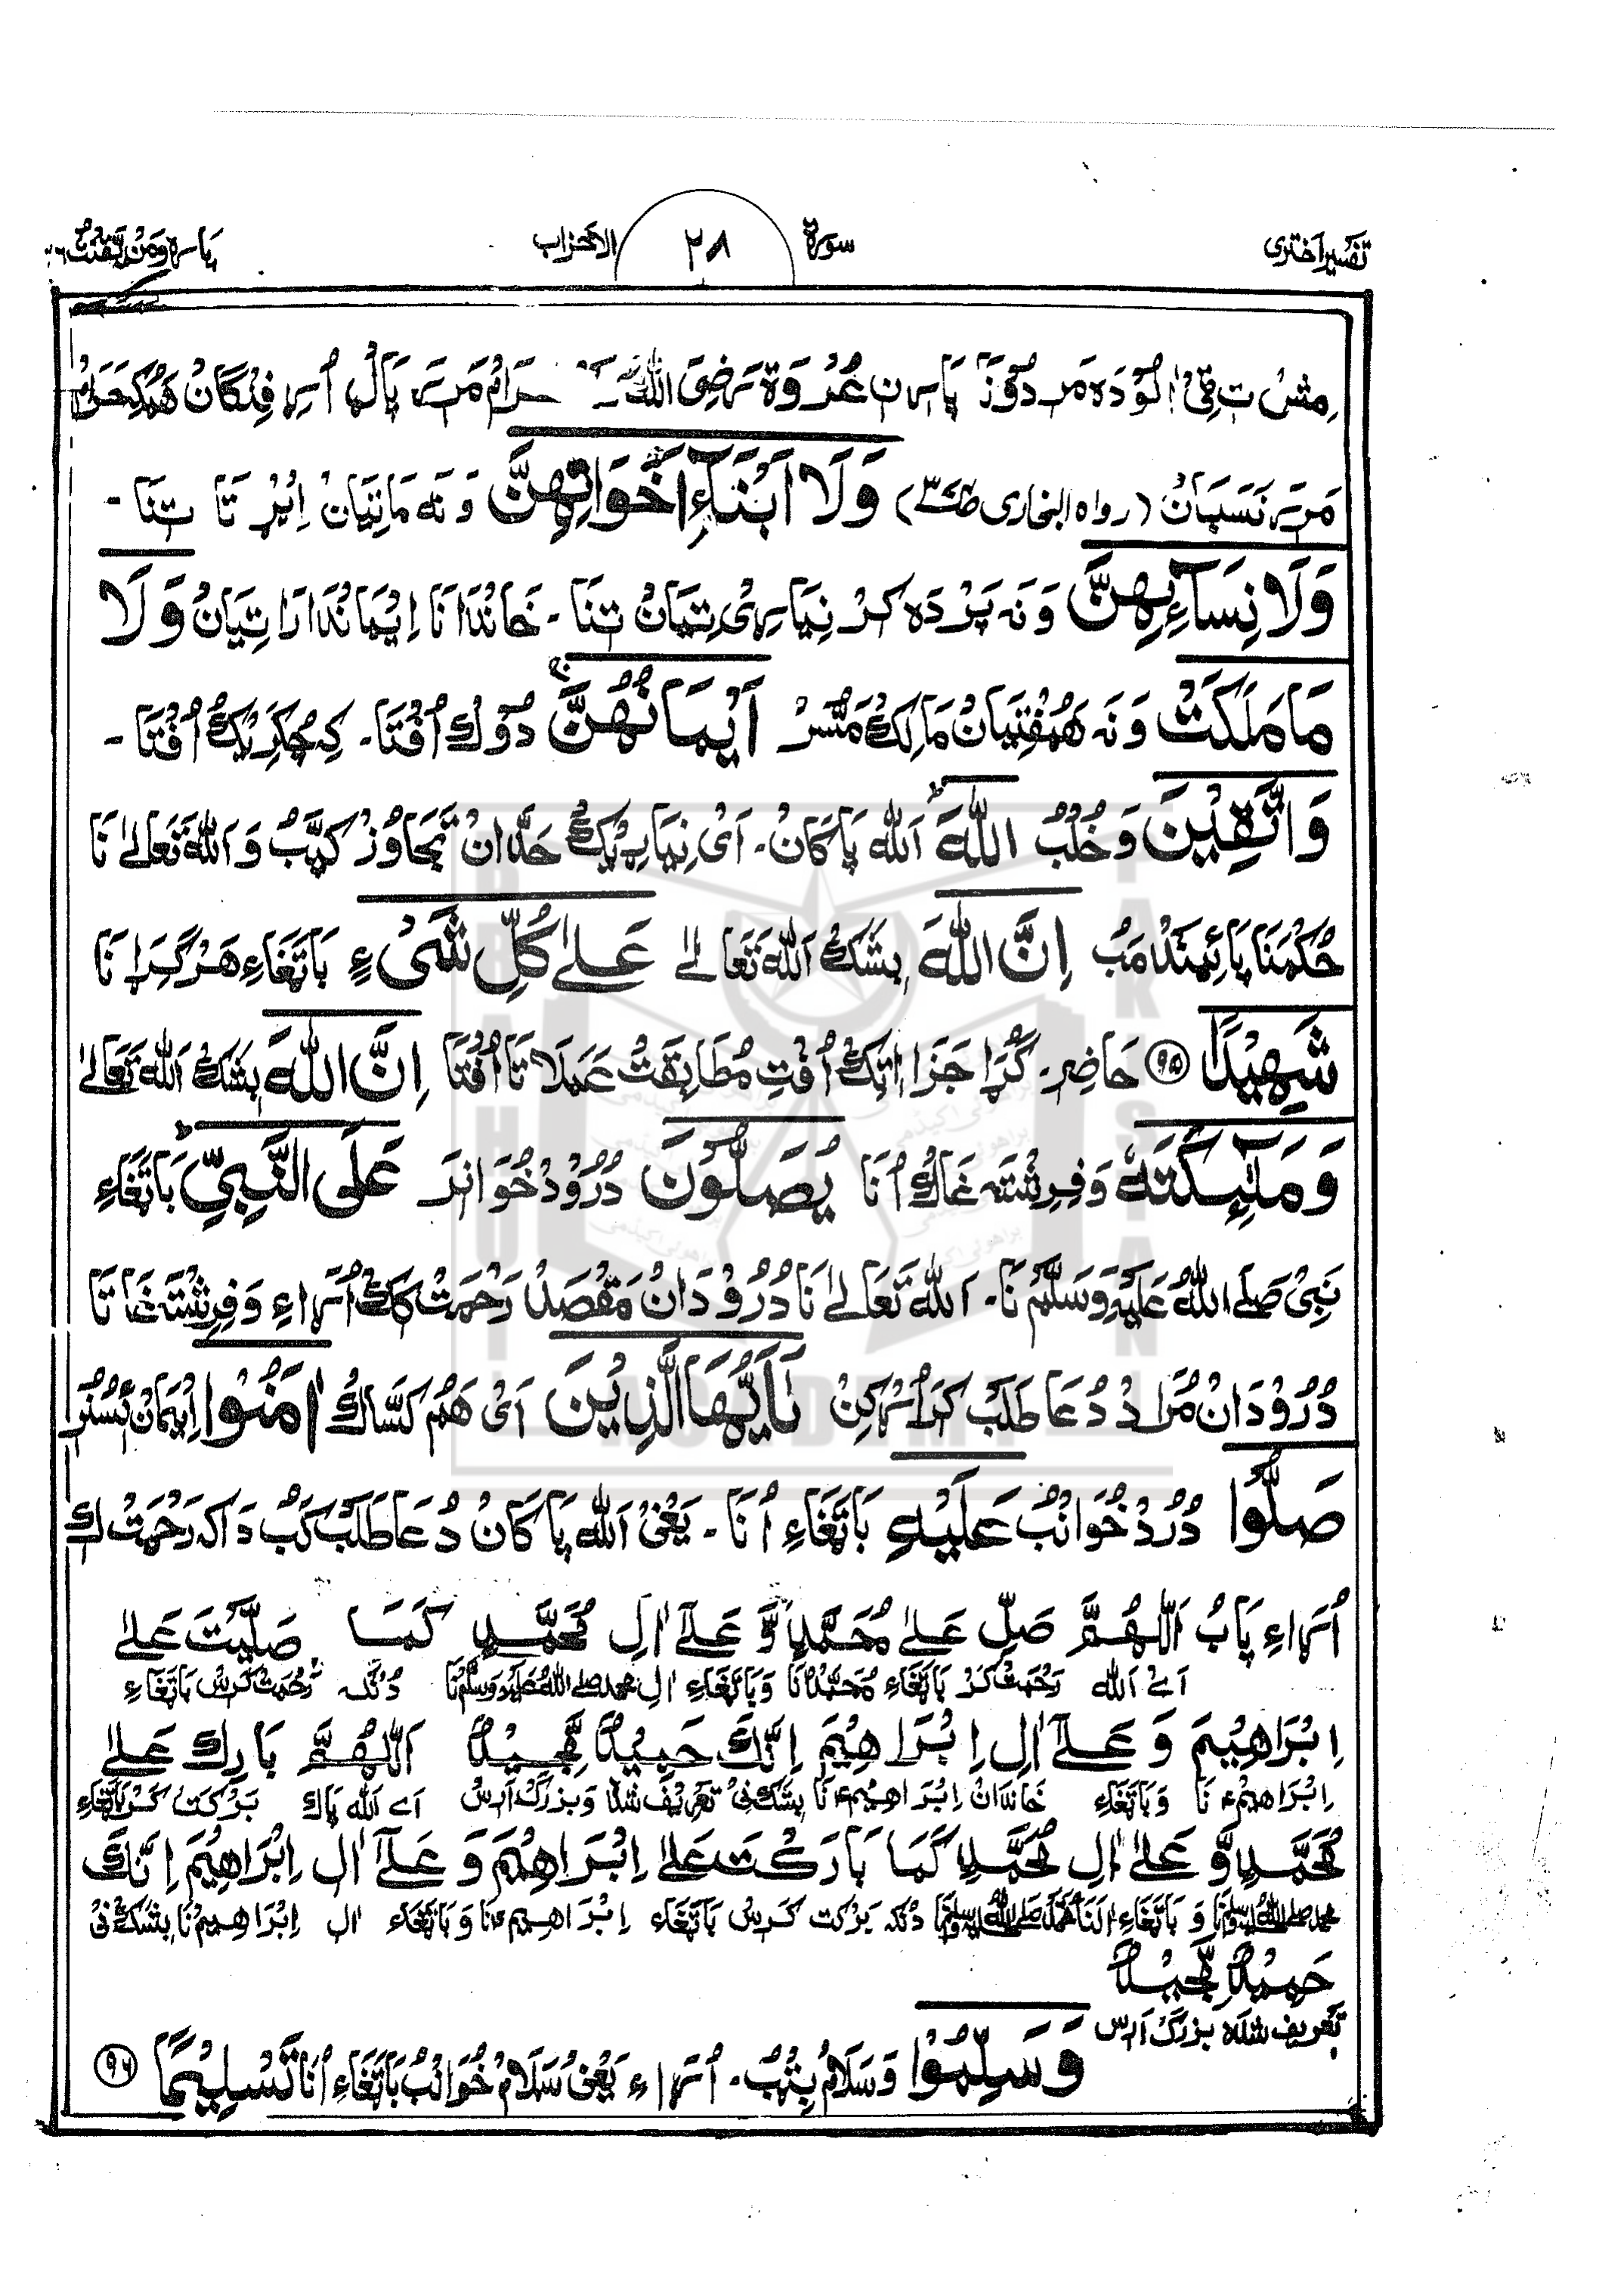 تفسیر اختری سورة ۲۸ الاحزاب پاره ومن یقنت
مَرے نَسَبَانْ (رواه البخاری) وَلَا اَبْنَآءِ اَخَوَاتِهِنَّ وَ نَه مَاتِیَانْ اِیْڑ تَا تِنَا -
وَلَا نِسَآءِهِنَّ وَ نَه پَرْدَه کر نِیَاڑی تِیَانْ تِنَا - خَانْدَانَا اِیْمَانْدَارَا تِیَانْ وَلَا
مَا مَلَكَتْ وَ نَه هَمُفْتِیَانْ مَالِکْ مَتُّسُرْ اَیْمَانُهُنَّ دُوْكْ اُفْتَا-
وَاتَّقِیْنَ وَ خُلْبُ اللّٰهَ اَللّٰه پَاکَانْ - اَیْ نِیَاڑیْکْ حَدَّانْ تَجَاوُزْ کَپَّبْ وَ اَللّٰه تَعَالٰے نَا
حُکْمَنَا پَائِمَنْدْ مَبْ اِنَّ اللّٰهَ بِشَکْ اَللّٰه تَعَالٰے عَلٰی كُلِّ شَیْءٍ بَاتَغَاءِ هَرْگِرَا نَا
شَهِیْدًا حَاضِر - گُڑَا جَزَا اِتِكْ اُفْتِ مُطَابِقَتْ عَمَلَا تَا اُفْتَا اِنَّ اللّٰهَ بِشَکْ اَللّٰه تَعَالٰے
وَ مَلٰٓئِكَتَهٗ وَ فِرِشْتَه غَاكْ اُنَا یُصَلُّوْنَ دُرُوْدْ خُوَانِرَ عَلَی النَّبِیِّ بَاتَغَاءِ
نَبِیْ صَلَے اللّٰهُ عَلَیْهِ وَسَلَّمْ نَا - اَللّٰه تَعَالٰے نَا دُرُوْدَانْ مَقْصَدْ رَحْمَتْ کِكْ اُڑاءِ وَ فِرِشْتَه غَا تَا
دُرُوْدَانْ مُرَادْ دُعَا طَلَبْ کَرْ اُڑکِنْ یٰٓاَیُّهَا الَّذِیْنَ اَیْ هَمْ کَسَّاكْ اٰمَنُوْا اِیْمَانْ هَسُّنُرْ
صَلُّوْا دُرُدْ خُوَانْبْ عَلَیْهِ بَاتَغَاءِ اُنَا - یَعْنِیْ اَللّٰه پَاکَانْ دُعَا طَلَبْ کَبْ دَاکِه رَحْمَتْ كِ
اُڑاءِ پَابُ اَللّٰهُمَّ صَلِّ عَلٰے مُحَمَّدٍ وَّ عَلٰٓے اٰلِ مُحَمَّدٍ كَمَا صَلَّیْتَ عَلٰے
اَے اَللّٰه رَحْمَتْ کَرْ بَاتَغَاءِ مُحَمَّدْ نَا وَ بَاتَغَاءِ اٰلِ محمد صلے اللّٰه علیه وسلم نَا دُنْکه رَحْمَتْ کَرِسْ بَاتَغَاءِ
اِبْرَاهِیْمَ وَ عَلٰٓے اٰلِ اِبْرَاهِیْمَ اِنَّكَ حَمِیْدٌ مَّجِیْدٌ اَللّٰهُمَّ بَارِكْ عَلٰے
اِبْرَاهِیْمؑ نَا وَ بَاتَغَاءِ خَانْدَانْ اِبْرَاهِیْمؑ نَا بِشَکْ نِیْ تَعْرِیْف شُدَه وَ بُزُرگ اُس اَے اَللّٰه پَاكْ بَرْکَتْ کَرْ بَاتَغَاءِ
مُحَمَّدٍ وَّ عَلٰٓے اٰلِ مُحَمَّدٍ كَمَا بَارَكْتَ عَلٰے اِبْرَاهِیْمَ وَ عَلٰٓے اٰلِ اِبْرَاهِیْمَ اِنَّكَ
محمد صلے اللّٰه علیه وسلم نَا وَ بَاتَغَاءِ اٰلِ محمد صلے اللّٰه علیه وسلم نَا دُنْکه بَرْکت کَرِسْ بَاتَغَاءِ اِبْرَاهِیْمؑ نَا وَ بَاتَغَاءِ اٰلِ اِبْرَاهِیْمْ نَا بِشَکْ نِیْ
حَمِیْدٌ مَّجِیْدٌ
تَعْرِیف شُدَه بزرگ اُس
وَ سَلِّمُوْا وَ سَلَامْ بِتْبُ - اُڑاءِ یَعْنِیْ سَلَامْ خُوَانْبُ بَاتَغَاءِ اُنَا تَسْلِیْمًا